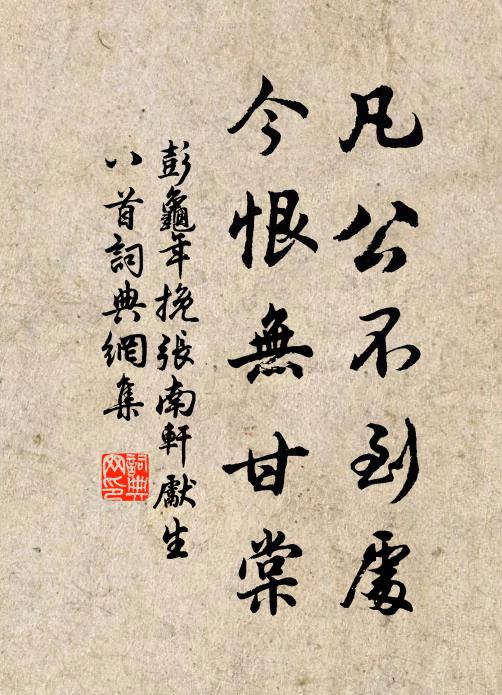 凡公不到處
今恨無甘棠
彭龜年挽張南軒獻生
八首詞典網集
詞典网印